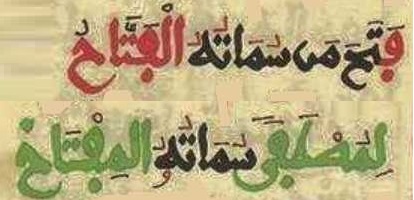 فَتَحَ مَن سماته الْفَتَّاحُ
لِمُصْطَفَى سماته الْمِفْتَاحُ